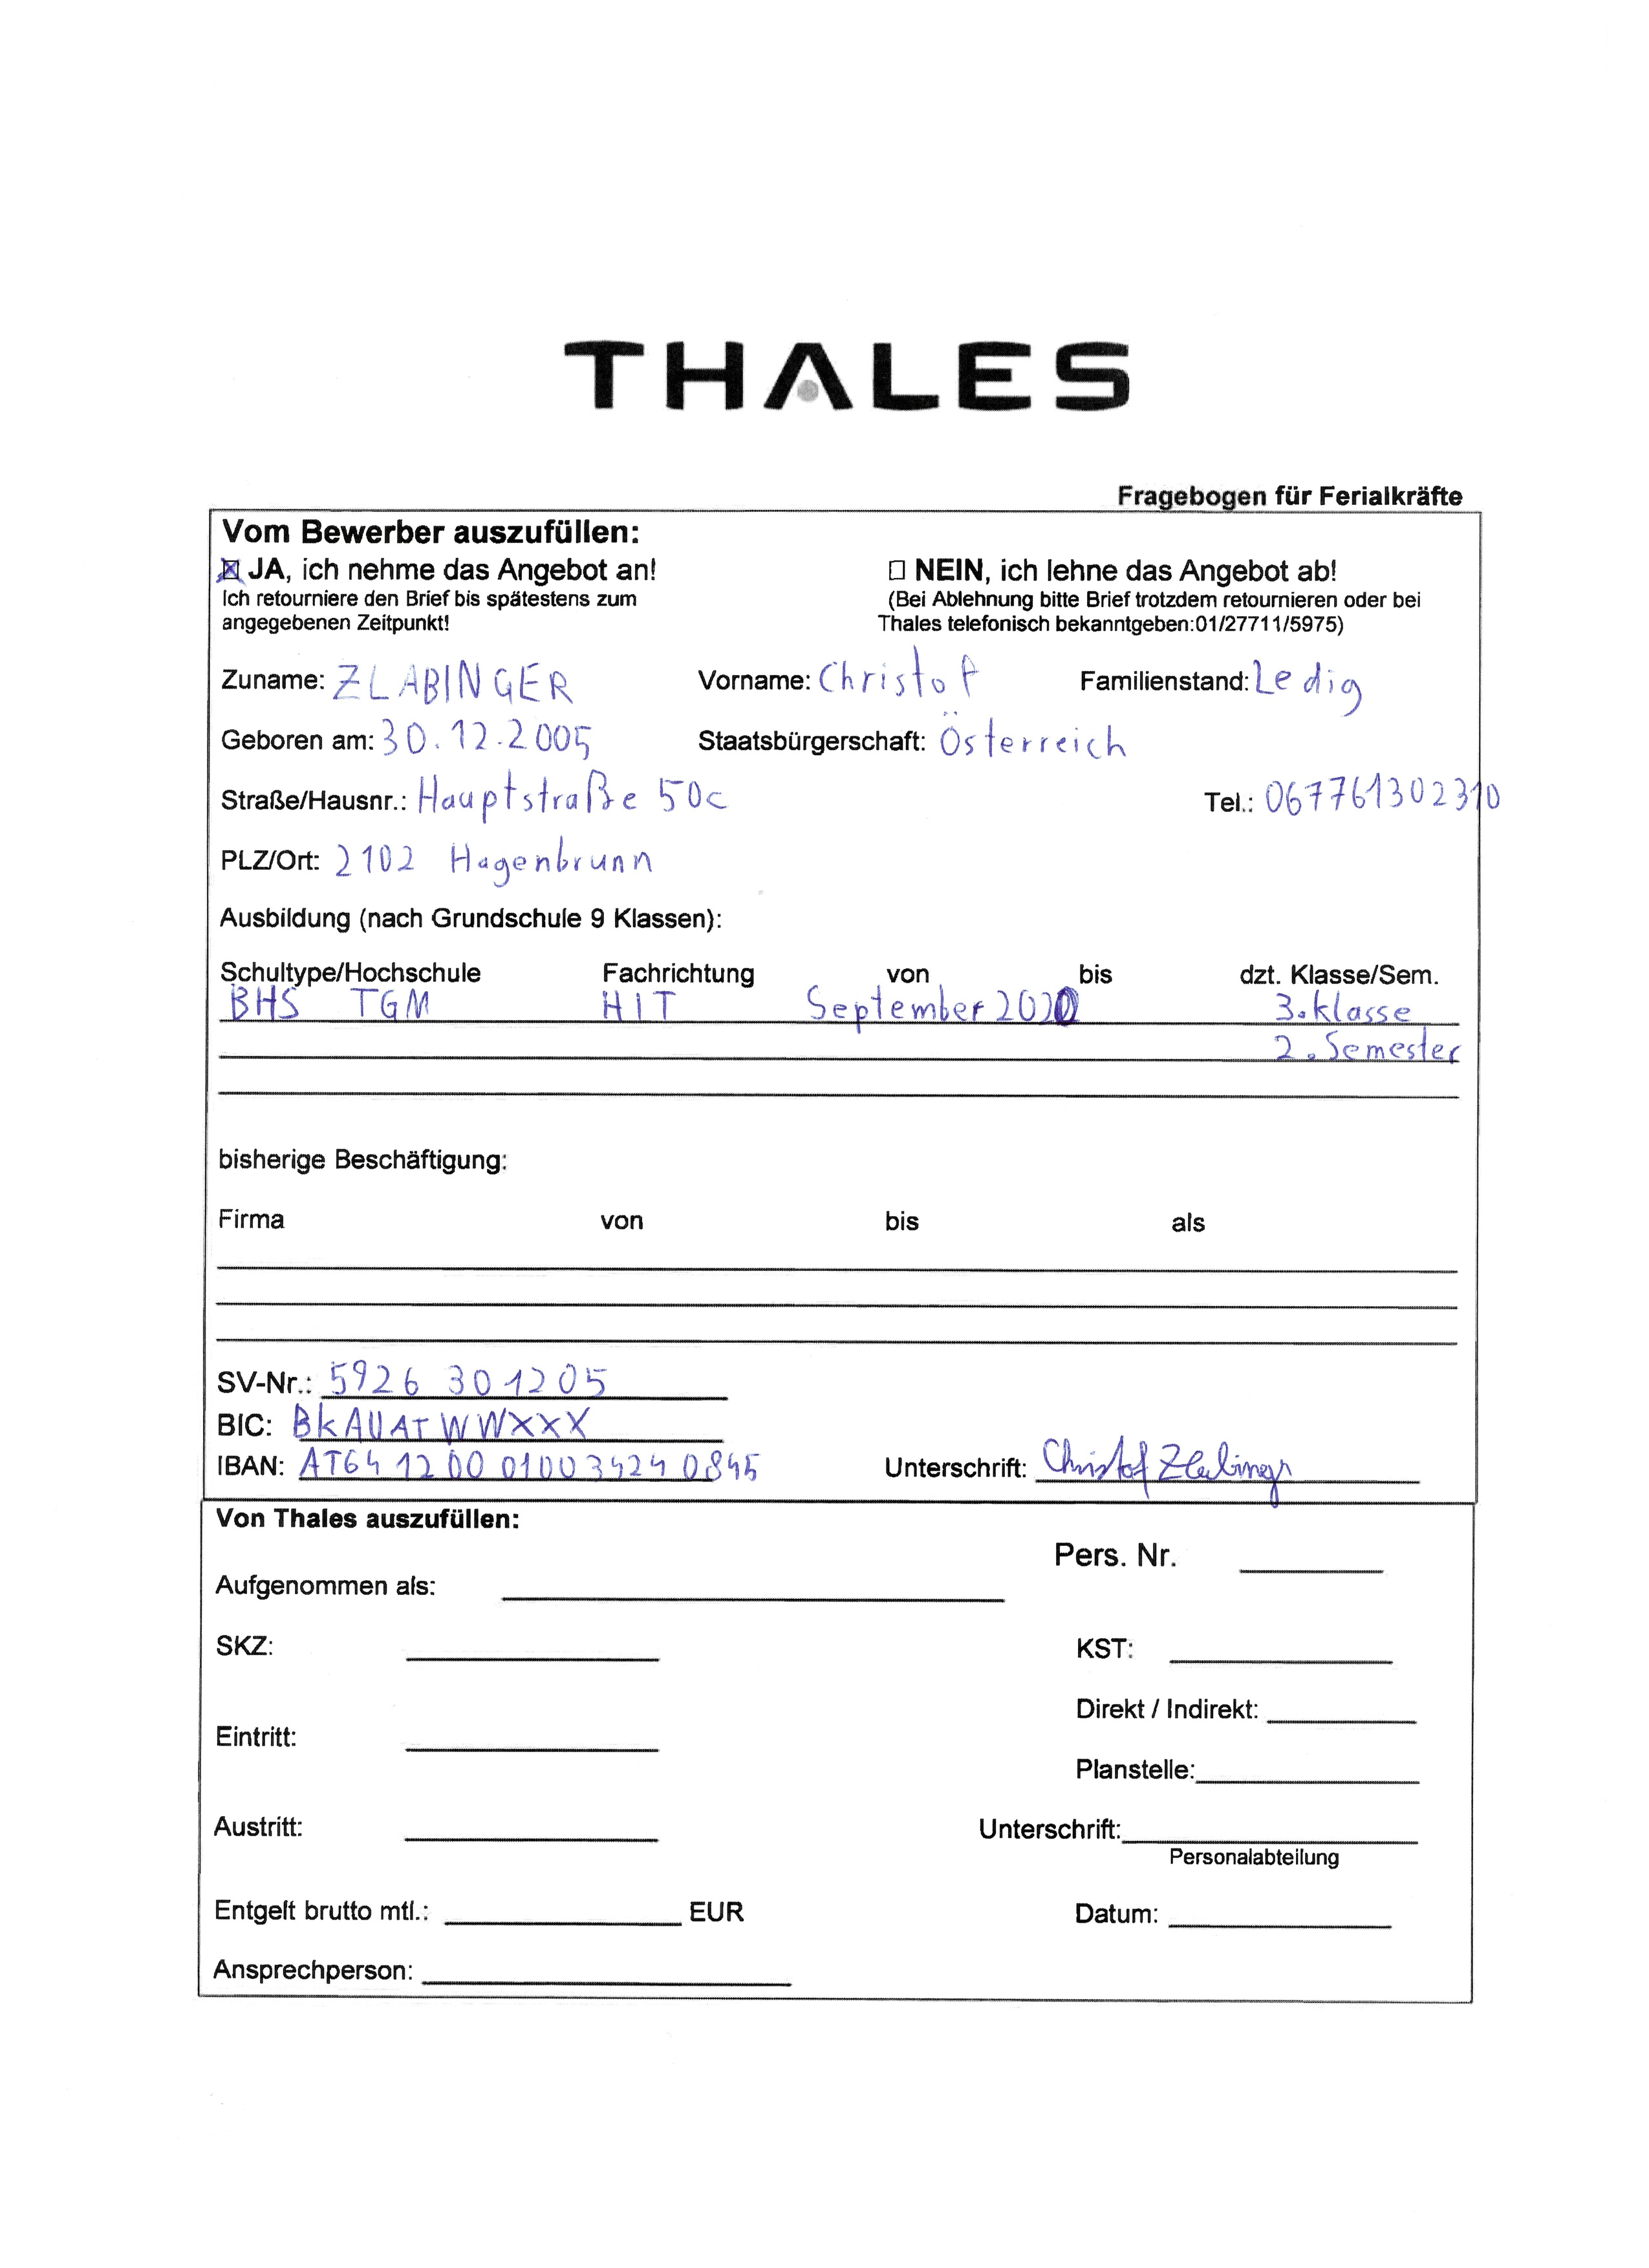 THALES
Fragebogen für Ferialkräfte
Vom Bewerber auszufüllen:
☒ JA, ich nehme das Angebot an! ☐ NEIN, ich lehne das Angebot ab!
Ich retourniere den Brief bis spätestens zum (Bei Ablehnung bitte Brief trotzdem retournieren oder bei
angegebenen Zeitpunkt! Thales telefonisch bekanntgeben:01/27711/5975)
Zuname: ZLABINGER Vorname: Christof Familienstand: Ledig
Geboren am: 30.12.2005 Staatsbürgerschaft: Österreich
Straße/Hausnr.: Hauptstraße 50c Tel.: 067761302310
PLZ/Ort: 2102 Hagenbrunn
Ausbildung (nach Grundschule 9 Klassen):
Schultype/Hochschule Fachrichtung von bis dzt. Klasse/Sem.
BHS TGM HIT September 2020 3. Klasse
2. Semester
bisherige Beschäftigung:
Firma von bis als
SV-Nr.: 5926 301205
BIC: BKAUATWWXXX
IBAN: AT64 1200 0100 3424 0845 Unterschrift: Christof Zlabinger
Von Thales auszufüllen:
Pers. Nr.
Aufgenommen als:
SKZ: KST:
Direkt / Indirekt:
Eintritt:
Planstelle:
Austritt: Unterschrift:
Personalabteilung
Entgelt brutto mtl.: EUR Datum:
Ansprechperson: